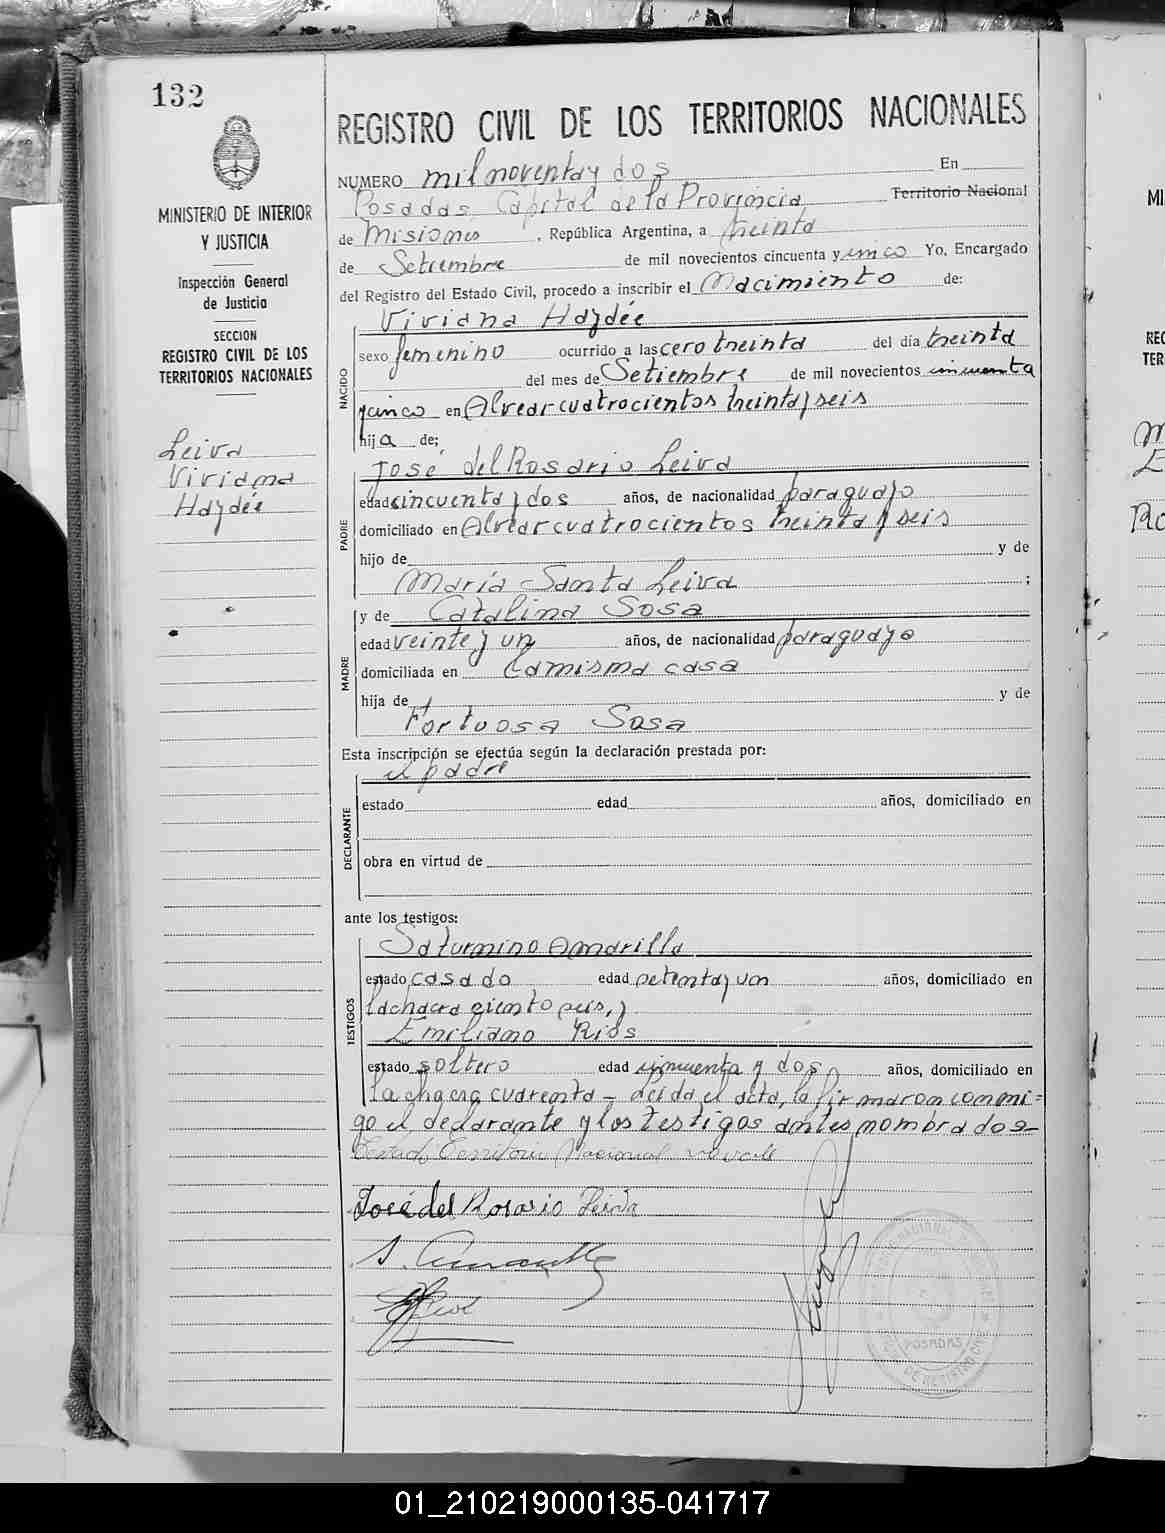 132
REGISTRO CIVIL DE LOS TERRITORIOS NACIONALES
MINISTERIO DE INTERIOR
Y JUSTICIA
Inspección General
de Justicia
SECCION
REGISTRO CIVIL DE LOS
TERRITORIOS NACIONALES
Leiva
Viviana
Haydée
NUMERO mil noventa y dos En
Posadas, Capital de la Provincia Territorio Nacional
de Misiones, República Argentina, a treinta
de Setiembre de mil novecientos cincuenta y cinco Yo, Encargado
del Registro del Estado Civil, procedo a inscribir el Nacimiento de:
NACIDO
Viviana Haydée
sexo femenino ocurrido a las cero treinta del día treinta
del mes de Setiembre de mil novecientos cincuenta
y cinco en Alvear cuatrocientos treinta y seis
hija de;
PADRE
José del Rosario Leiva
edad cincuenta y dos años, de nacionalidad paraguayo
domiciliado en Alvear cuatrocientos treinta y seis
hijo de y de
María Santa Leiva ;
MADRE
y de Catalina Sosa
edad veinte y un años, de nacionalidad paraguaya
domiciliada en la misma casa
hija de y de
Fortuosa Sosa
Esta inscripción se efectúa según la declaración prestada por:
DECLARANTE
el padre
estado edad años, domiciliado en
obra en virtud de
ante los testigos:
TESTIGOS
Saturnino Amarilla
estado casado edad setenta y un años, domiciliado en
la chacra ciento seis, y
Emiliano Rios
estado soltero edad cincuenta y dos años, domiciliado en
la chacra cuarenta - Leída el acta, la firmaron conmi=
go el declarante y los testigos antes nombrados-
Testado Territorio Nacional no vale
José del Rosario Leiva
S. Amarilla
POSADAS
01_210219000135-041717